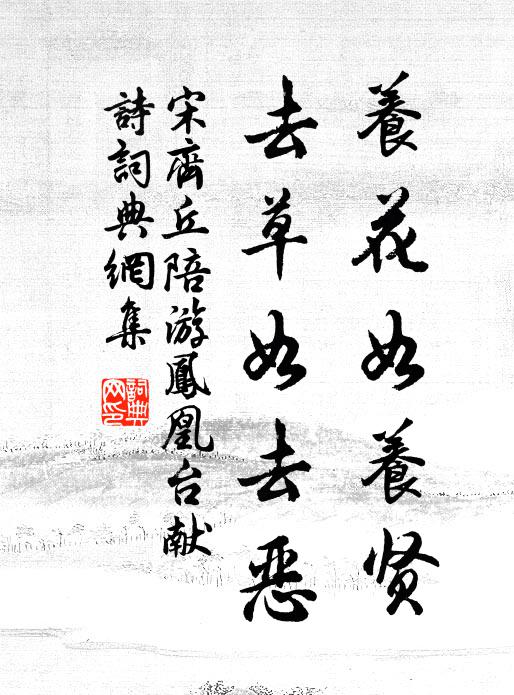 養花如養贤
去草如去惡
宋齊丘陪游鳳凰台献
詩詞典網集
詞典
网印